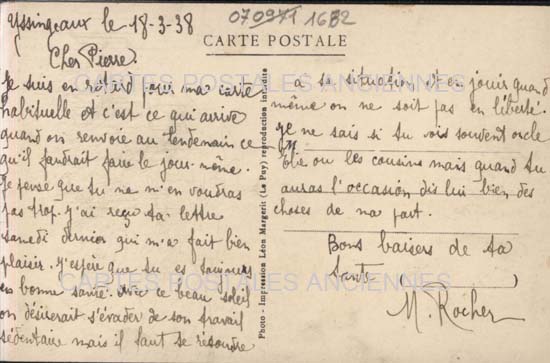 Yssingeaux le 18-3-38
070971 1682
CARTE POSTALE
Cher Pierre.
Je suis en retard pour ma carte
habituelle et c'est ce qui arrive
quand on renvoie au lendemain ce
qu'il faudrait faire le jour-même.
Je pense que tu ne m'en voudras
pas trop. J'ai reçu ta lettre
samedi dernier qui m'a fait bien
plaisir. J'espère que tu es toujours
en bonne santé. Avec ce beau soleil
on désirerait s'évader de son travail
sédentaire mais il faut se résoudre
Photo - Impression Léon Margerit (Le Puy) reproduction interdite
à sa situation et en jouir quand
même on ne soit pas en liberté.
Je ne sais si tu vois souvent oncle
ou les cousins mais quand tu
auras l'occasion dis lui bien des
choses de ma part.
Bons baisers de ta
tante
M. Rocher
CARTES POSTALES ANCIENNES
CARTES POSTALES ANCIENNES